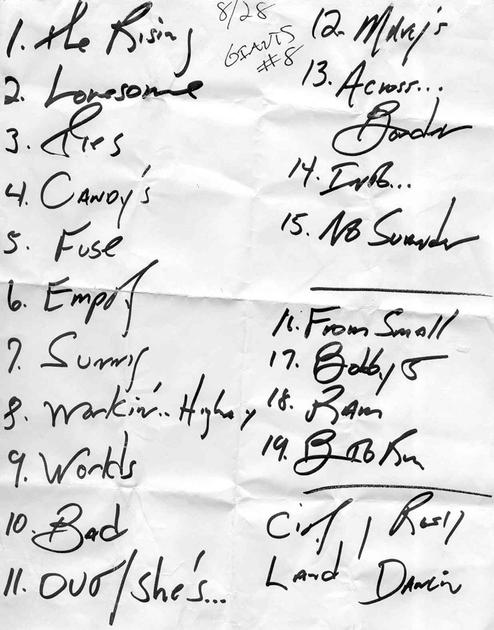 8/28
GIANTS
#8
1. the Rising
2. Lonesome
3. Ties
4. CANDY's
5. FUSE
6. Empty
7. SUNNY
8. Workin'.. Highway
9. Worlds
10. Bad
11. OUT/she's...
12. MARY'S
13. Across...
Border
14. INTO...
15. NO SURENDER
16. From Small
17. Bobby J
18. RAM
19. B TO RUN
Cinf / Rosy
LAND DANCIN